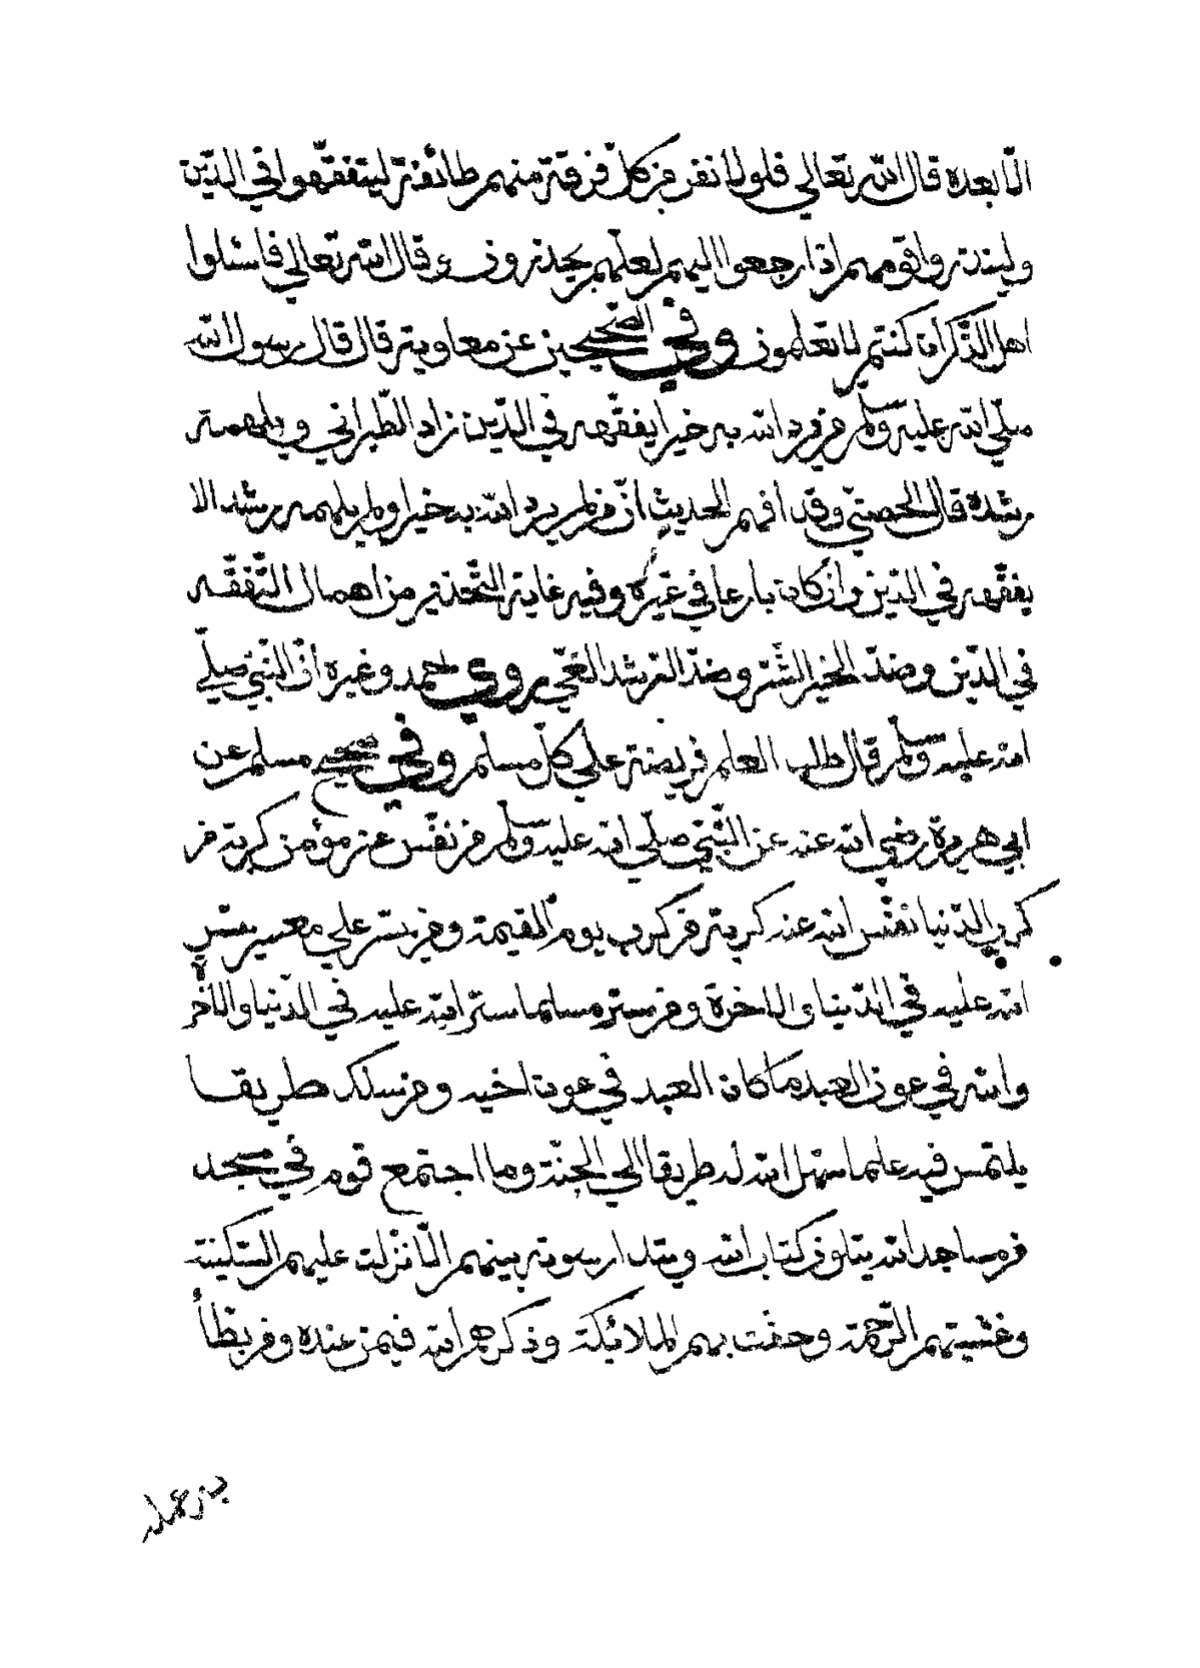 الّا بعده قال اللّه تعالي فلولا نفر من كلّ فرقة منهم طائفة ليتفقّهوا في الدّين
ولينذروا قومهم اذا رجعوا اليهم لعلّهم يحذرون وقال اللّه تعالي فاسئلوا
اهل الذّكر ان كنتم لا تعلمون وفي الصّحيحين عن معاوية قال قال رسول اللّه
صلّي اللّه عليه وسلّم من يرد اللّه به خيرا يفقّهه في الدّين زاد الطّبراني ويلهمه
رشده قال الحصني وقد افهم الحديث انّ من لم يرد اللّه به خيرا ولم يلهمه رشد الا
يفقّهه في الدّين وان كان بارعا في غيره وفيه غاية التّحذير من اهمال التّفقّه
في الدّين وضدّ الخير الشّر وضدّ الرشد الغيّ وروي احمد وغيره انّ النّبي صلّي
اللّه عليه وسلّم قال طلب العلم فريضة علي كلّ مسلم وفي صحيح مسلم عن
ابي هريرة رضي اللّه عنه عن النّبي صلّي اللّه عليه وسلّم من نفّس عن مؤمن كربة من
كرب الدّنيا نفّس اللّه عنه كربة من كرب يوم القيمة ومن يسّر علي معسر يسّر
اللّه عليه في الدّنيا والاخرة ومن ستر مسلما ستر اللّه عليه في الدّنيا والاخرة
واللّه في عون العبد ما كان العبد في عون اخيه ومن سلك طريقا
يلتمس فيه علما سهّل اللّه له طريقا الي الجنّة وما اجتمع قوم في مسجد
من مساجد اللّه يتلون كتاب اللّه ويتدارسونه بينهم الّا نزلت عليهم السّكينة
وغشيتهم الرّحمة وحفّت بهم الملائكة وذكرهم اللّه فيمن عنده ومن بطّأ
به عمله